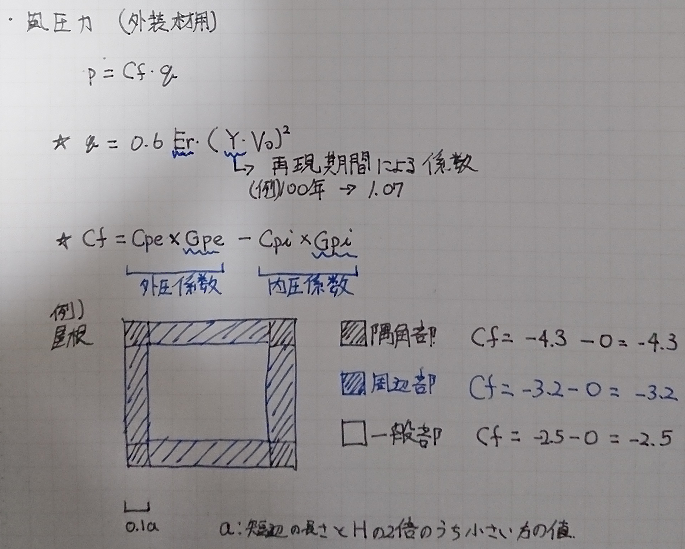 ・風圧力 (外装材用)
p = Cf・q
☆ q = 0.6 Er・(Y・V₀)²
↳ 再現期間による係数
(例)100年 → 1.07
☆ Cf = Cpe × Gpe − Cpi × Gpi
外圧係数 内圧係数
例)
屋根
隅角部 Cf = -4.3 - 0 = -4.3
周辺部 Cf = -3.2 - 0 = -3.2
一般部 Cf = -2.5 - 0 = -2.5
0.1a
a:短辺の長さとHの2倍のうち小さい方の値